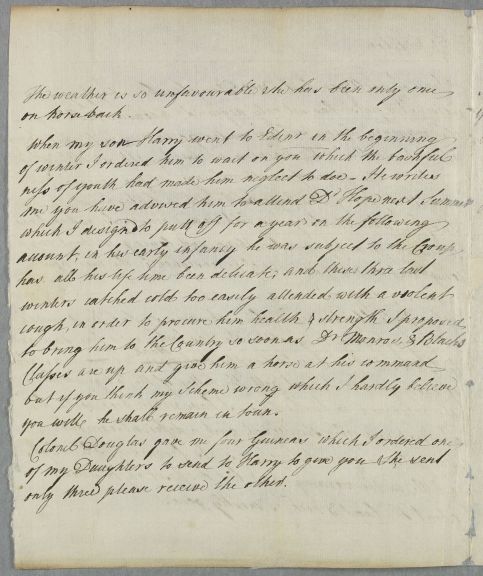 The weather is so unfavourable she has been only once
on horseback.
When my son Harry went to Edinr in the beginning
of winter I ordered him to wait on you which the bashful
ness of youth had made him neglect to doe - He writes
me you have advised him to attend Dr Hope next Summer
which I designd to putt off for a year on the following
account, in his early infancy he was subject to the Croup
has all his life time been delicate; and these three last
winters catched cold too easily attended with a violent
cough, in order to procure him health & strength I proposed
to bring him to the Country so soon as Dr Monros & Blacks
Classes are up and give him a horse at his command
but if you think my Scheme wrong which I hardly believe
you will, he shall remain in town.
Colonel Douglas gave me four Guineas which I ordered one
of my Daughters to send to Harry to give you & she sent
only three please receive the other.